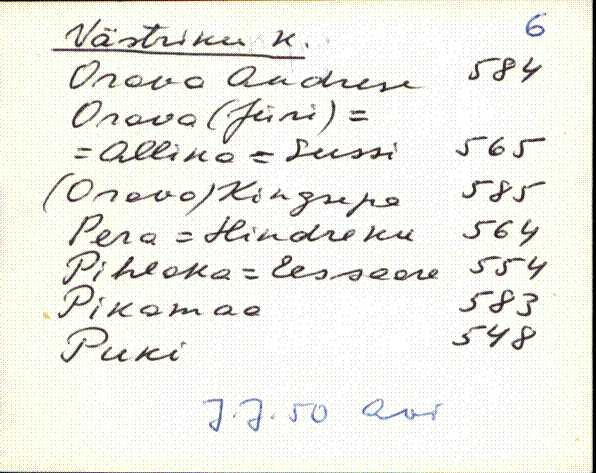 6
Västriku k.
Orava Andrese 584
Orava (Jüri) =
= Allika = Sussi 565
(Orava) Kingsepa 585
Pera = Hindreku 564
Pihlaka = Eessaare 554
Pikamaa 583
Puki 548
J. J. 50 Avi